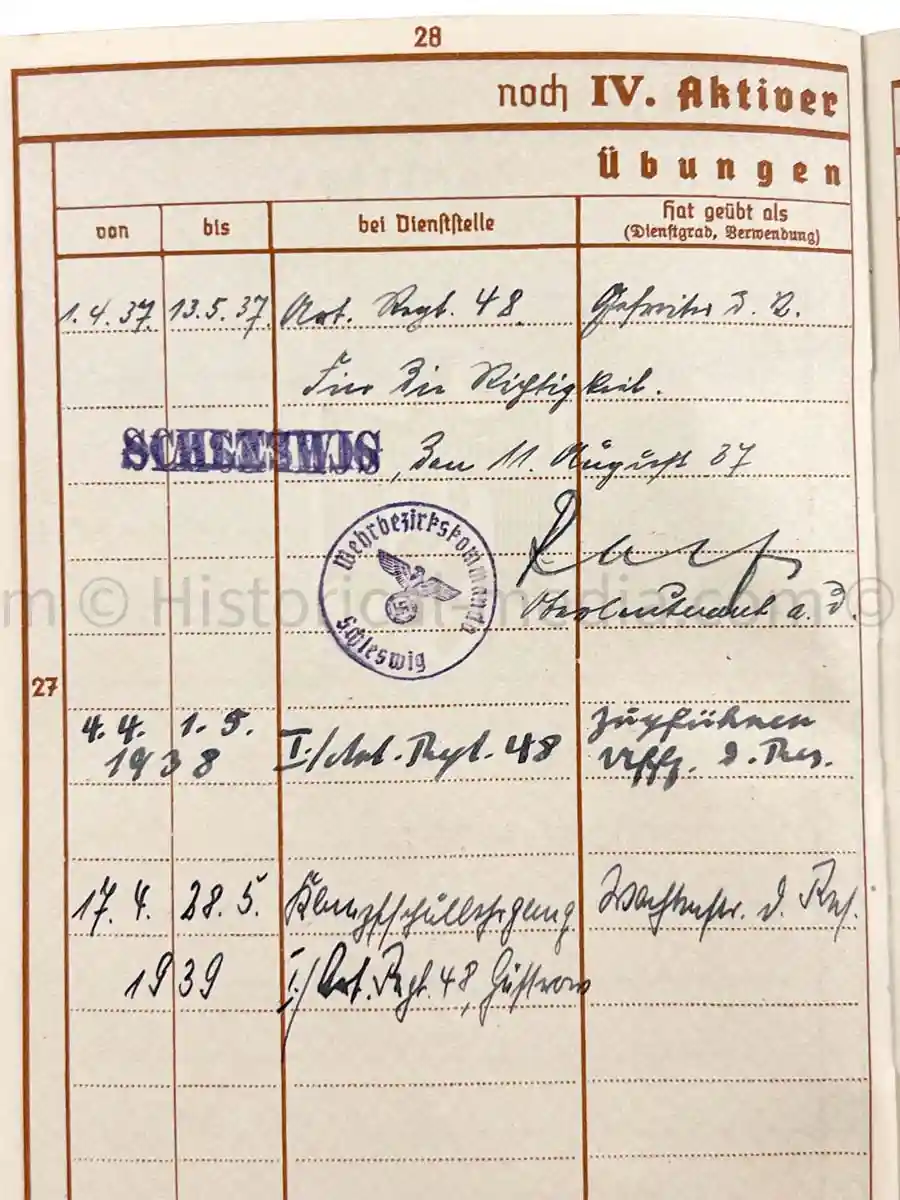 28
noch IV. Aktiver
Übungen
von bis bei Dienststelle Hat geübt als
(Dienstgrad, Verwendung)
1.4.37. 13.5.37. Art. Regt. 48 Gefreiter d. R.
Für die Richtigkeit.
SCHLESWIG, den 11. August 37
Wehrbezirkskommando
Schleswig
Oberleutnant a. D.
m © Historical-media.com ©
27
4.4. 1.5. Zugführer
1938 I./Art. Regt. 48 Uffz. d. Res.
17.4. 28.5. Wachtmstr. d. Res.
1939 I./Art. Regt. 48, Güstrow